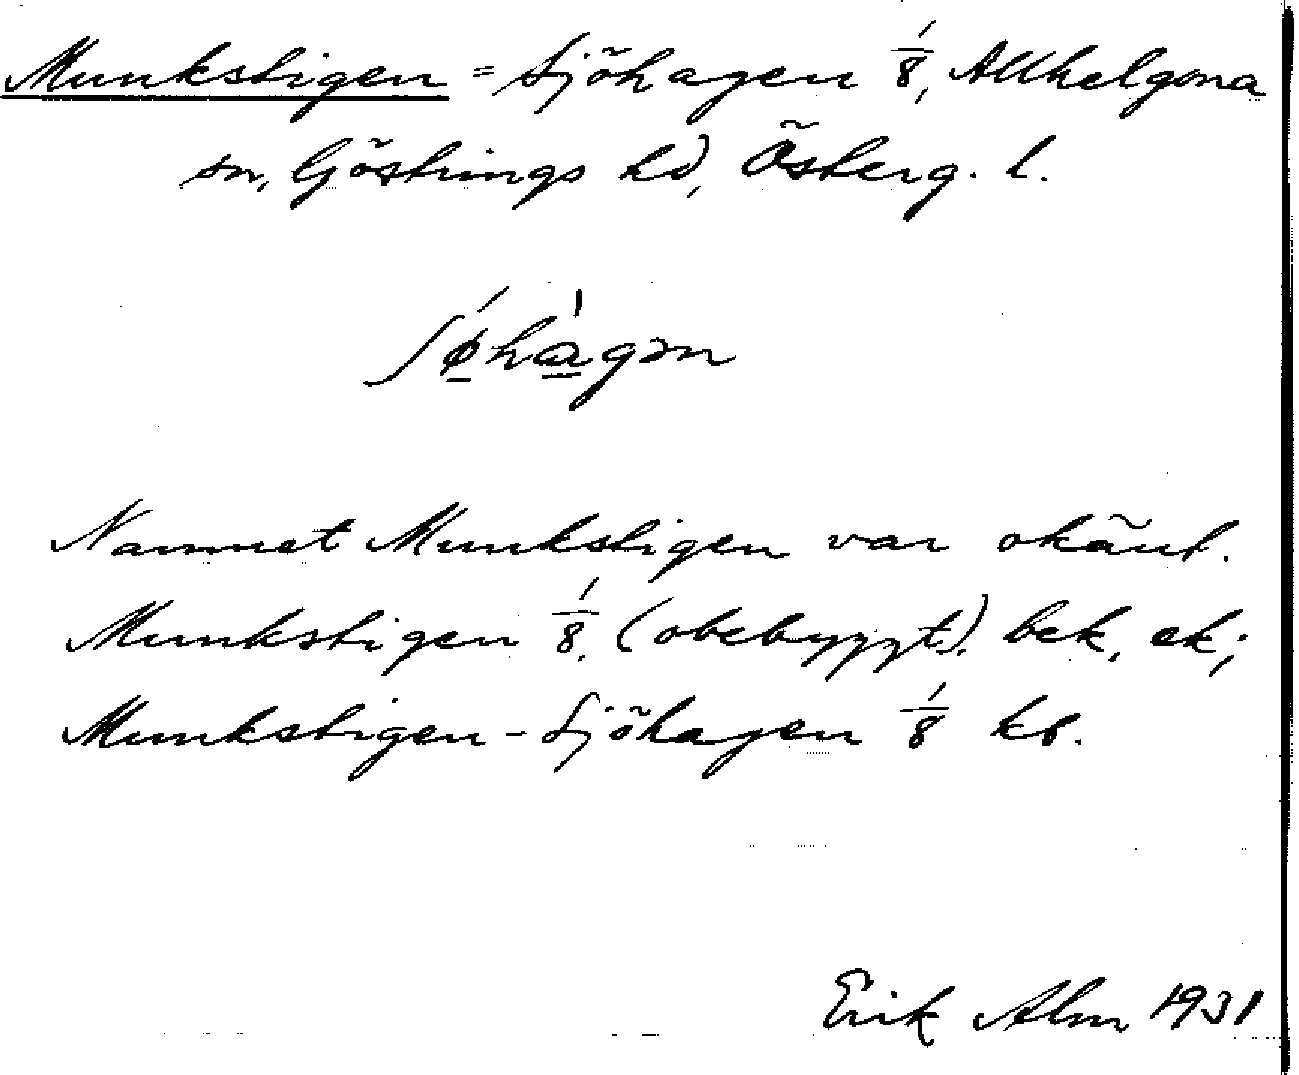 Munkstigen = Sjöhagen 1/8, Allhelgona
sn, Göstrings hd, Österg. l.
ʃǿhàgən
Namnet Munkstigen var okänt.
Munkstigen 1/8, (obebyggt), bek, ek;
Munkstigen - Sjöhagen 1/8 kb.
Erik Alm 1931